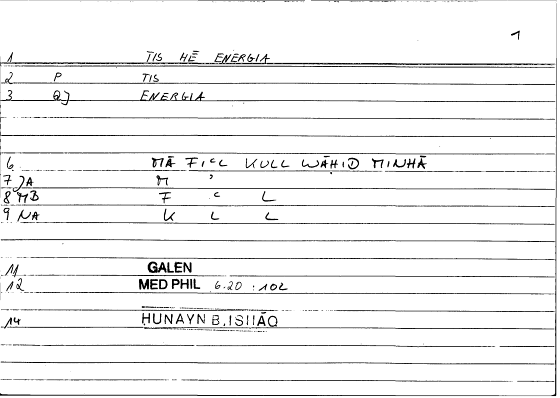 1
1 TIS HĒ ENERGIA
2 P TIS
3 QJ ENERGIA
6 MĀ FIʿL KULL WĀḤID MINHĀ
7 JA M ʾ
8 MB F ʿ L
9 NA K L L
11 GALEN
12 MED PHIL 6.20 :10L
14 ḤUNAYN B.ISḤĀQ